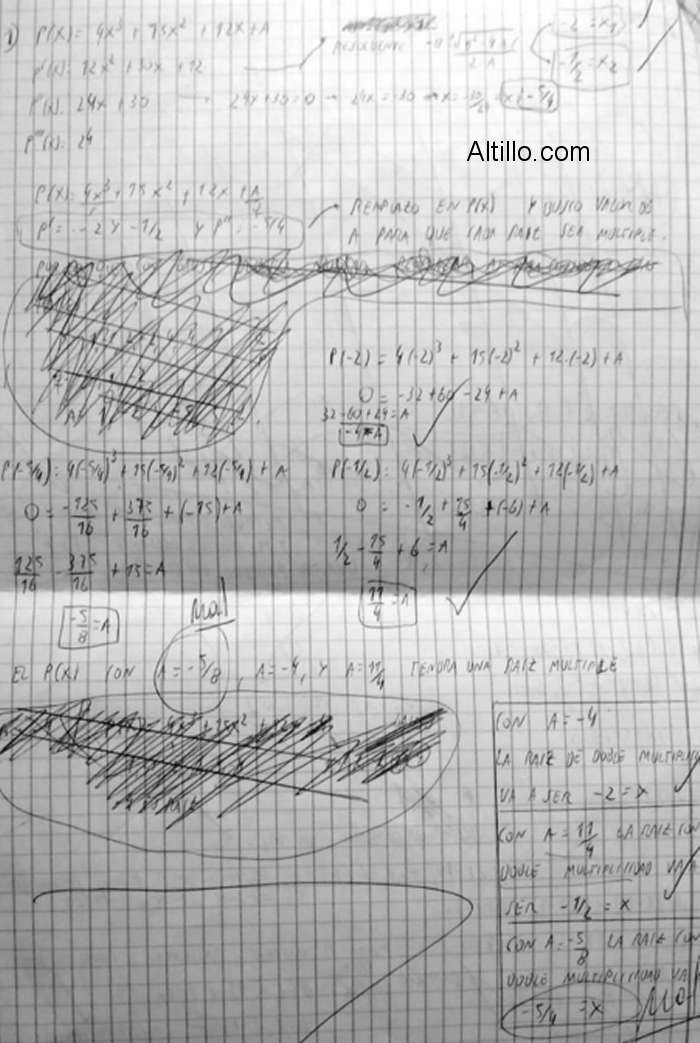 1) P(X) = 4X³ + 15X² + 12X + A
P'(X): 12X² + 30X + 12
RESOLVENTE
-2 = X₁
-1/2 = X₂
P''(X): 24X + 30
24X + 30 = 0 → 24X = -30 → X = -30/24 X = -5/4
P'''(X): 24
Altillo.com
P(X): 4X³ + 15X² + 12X + A
P' = -2 Y -1/2 Y P'' = -5/4
REMPLAZO EN P(X) Y BUSCO VALOR DE
A PARA QUE CADA RAIZ SEA MULTIPLE.
P(-2) = 4(-2)³ + 15(-2)² + 12·(-2) + A
0 = -32 + 60 - 24 + A
32 - 60 + 24 = A
-4 = A
P(-5/4): 4(-5/4)³ + 15(-5/4)² + 12(-5/4) + A
0 = -125/16 + 375/16 + (-15) + A
125/16 - 375/16 + 15 = A
-5/8 = A
P(-1/2): 4(-1/2)³ + 15(-1/2)² + 12(-1/2) + A
0 = -1/2 + 15/4 + (-6) + A
1/2 - 15/4 + 6 = A
11/4 = A
Mal
EL P(X) CON A = -5/8, A = -4, Y A = 11/4 TENDRA UNA RAIZ MULTIPLE
CON A = -4
LA RAIZ DE DOBLE
VA A SER -2 = X
CON A = 11/4 LA RAIZ CON
DOBLE MULTIPLICIDAD VA A
SER -1/2 = X
CON A = -5/8 LA RAIZ CON
DOBLE MULTIPLICIDAD VA
-5/4 = X
Mal